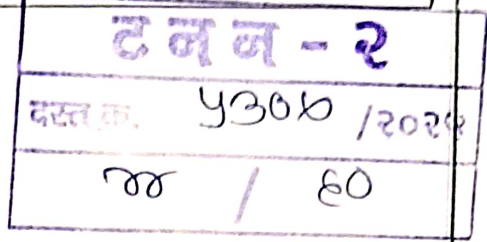 ट न न - २
दस्त क्र. ५३०४ /२०२५
४४ / ६०